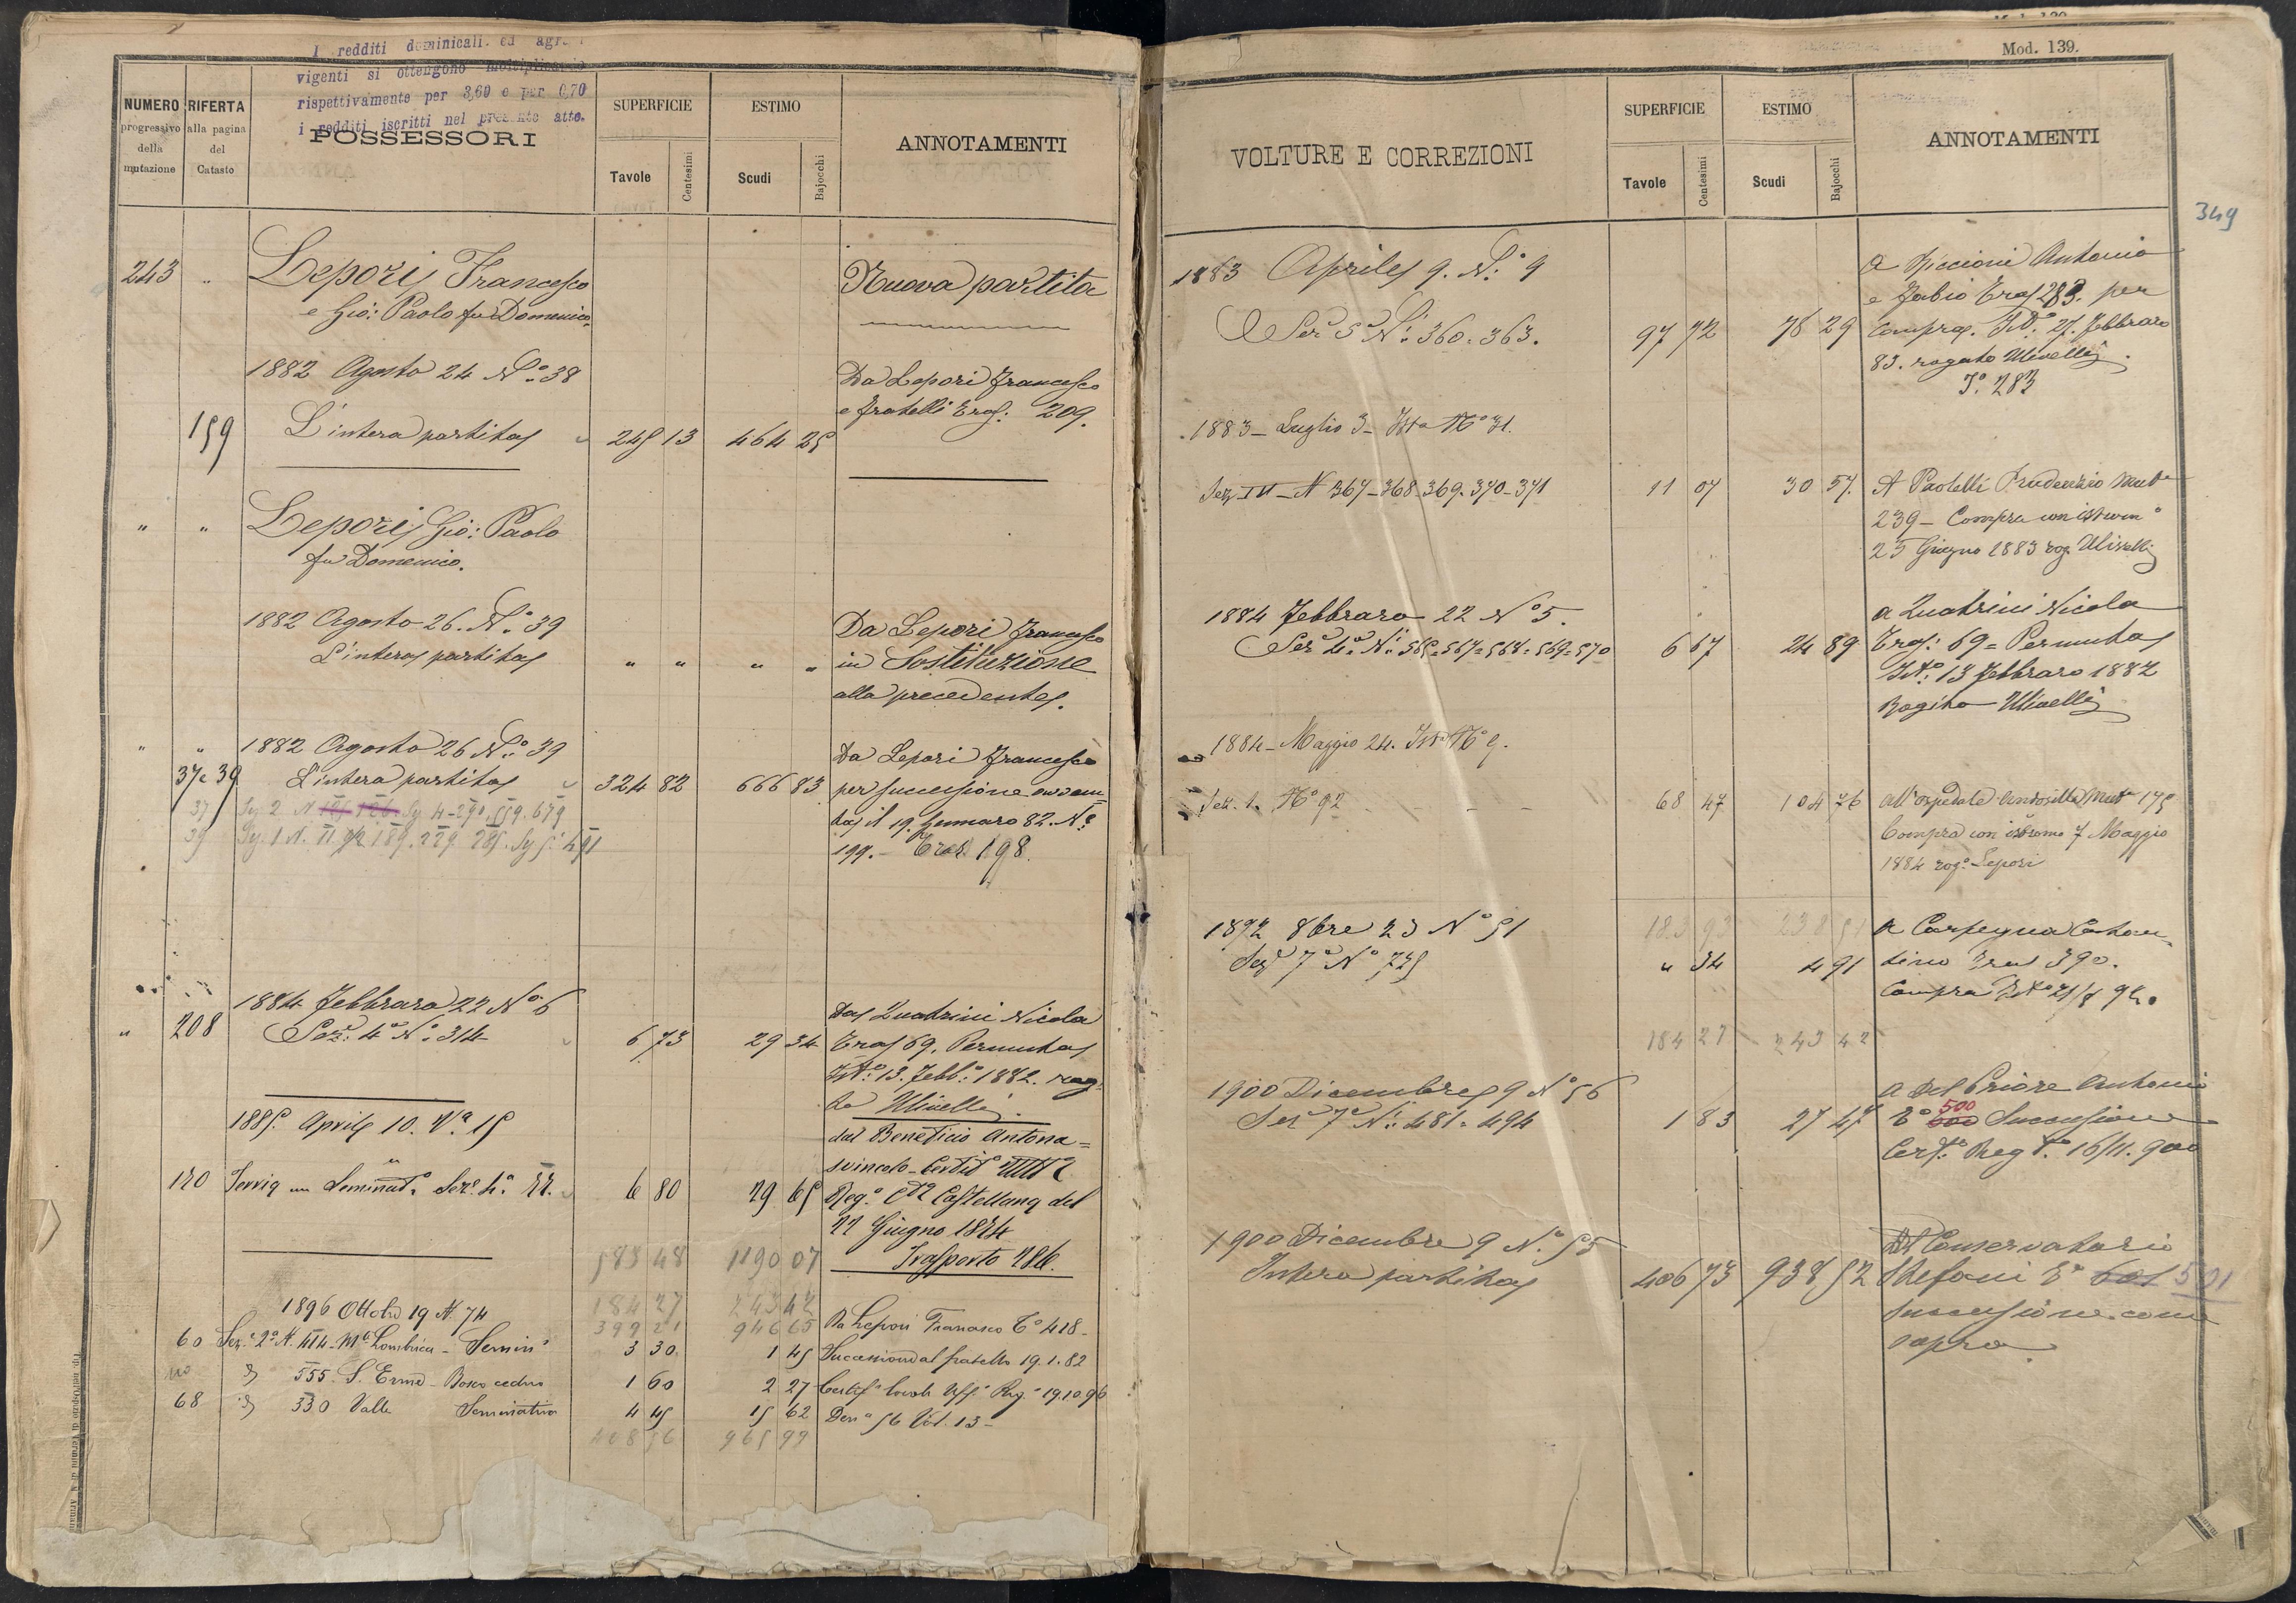 I redditi dominicali ed
vigenti si ottengono
rispettivamente per 3,60 e per 0,70
i redditi iscritti nel presente atto.
NUMERO progressivo della mutazione
RIFERTA alla pagina del Catasto
POSSESSORI
SUPERFICIE
Tavole
Centesimi
ESTIMO
Scudi
Bajocchi
ANNOTAMENTI
243 " Lepori Francesco Nuova partita
e Gio: Paolo fu Domenico
1882 Agosto 24 N.o 38 Da Lepori Francesco
e fratelli Tras: 209.
159 L'intera partita 245 13 464 25
" " Lepori Gio: Paolo
fu Domenico.
1882 Agosto 26. N.o 39 Da Lepori Francesco
L'intera partita " " " " in Sostituzione
alla precedente.
" " 1882 Agosto 26 N.o 39 Da Lepori Francesco
37 e 39 L'intera partita 324 82 666 83 per successione
il 19. Gennaro 82. N.o
199. Tras. 198.
1884 Febbraro 22 N.o 6 Da Quatrini Nicola
" 208 Sez: 4a N.o 314 6 73 29 34 Tras 69. Permuta
Ist.o 13. Febb.o 1882. rog
1885 Aprile 10. 15
dal Beneficio Antona
svincolo
120 Sez. 4a 6 80 29 65 Reg.o Castellana del
22 Giugno 1884
583 48 1190 07 Trasporto 286.
1896 Ottobre 19 N. 74 184 27 243 42
399 21 946 65 Da Lepori Francesco T.o 418
60 Sez. 2a N. 414 Lombrica - Semin.o 3 30 1 45 Successione al fratello 19.1.82
555 S. Ermo - Bosco ceduo 1 60 2 27 19.10.96
68 330 Valle Seminativo 4 45 15 62 Den.a 56 Vol. 13
408 56 965 99
Mod. 139.
VOLTURE E CORREZIONI
SUPERFICIE
Tavole
Centesimi
ESTIMO
Scudi
Bajocchi
ANNOTAMENTI
349
1883 Aprile 9. N.o 9 a Piccioni Antonio
e Fabio Tras 283. per
Sez 5a N.i 360. 363. 97 72 78 29 Compra. Ist.o 27. Febbraro
83. rogato
T.o 283
1883 - Luglio 3 - N.o 31.
Sez - N 367-368-369-370-371 11 07 30 57. A Paolelli Prudenzio Mut.e
239 - Compra con
25 Giugno 1883 rog.
1884 Febbraro 22 N.o 5. a Quatrini Nicola
Sez 4a N.i 565=567=568=569=570 6 67 24 89 Tras: 69 = Permuta
Ist.o 13 Febbraro 1882
Rogito
1884 - Maggio 24. N.o 9.
Sez. 1. N.o 92 - - - 68 47 104 76 all'ospedale Mut.e 175
Compra con 7 Maggio
1884 rog.o Lepori
1892 8bre 23 N.o 51 183 93 238 51 a Carpegna Costan
Sez 7a N.o 725 " 34 4 91 tino Tras 390.
Compra
184 27 243 42
1900 Dicembre 9 N.o 56 a Del Priore Antonio
Sez 7a N.i 481=494 1 83 27 47 T.o 500 Successione
Cert. Reg. 16/11.900
1900 Dicembre 9 N.o 55 Al Conservatorio
Intera partita 406 73 938 52 Stefoni T.o 501
successione come
sopra